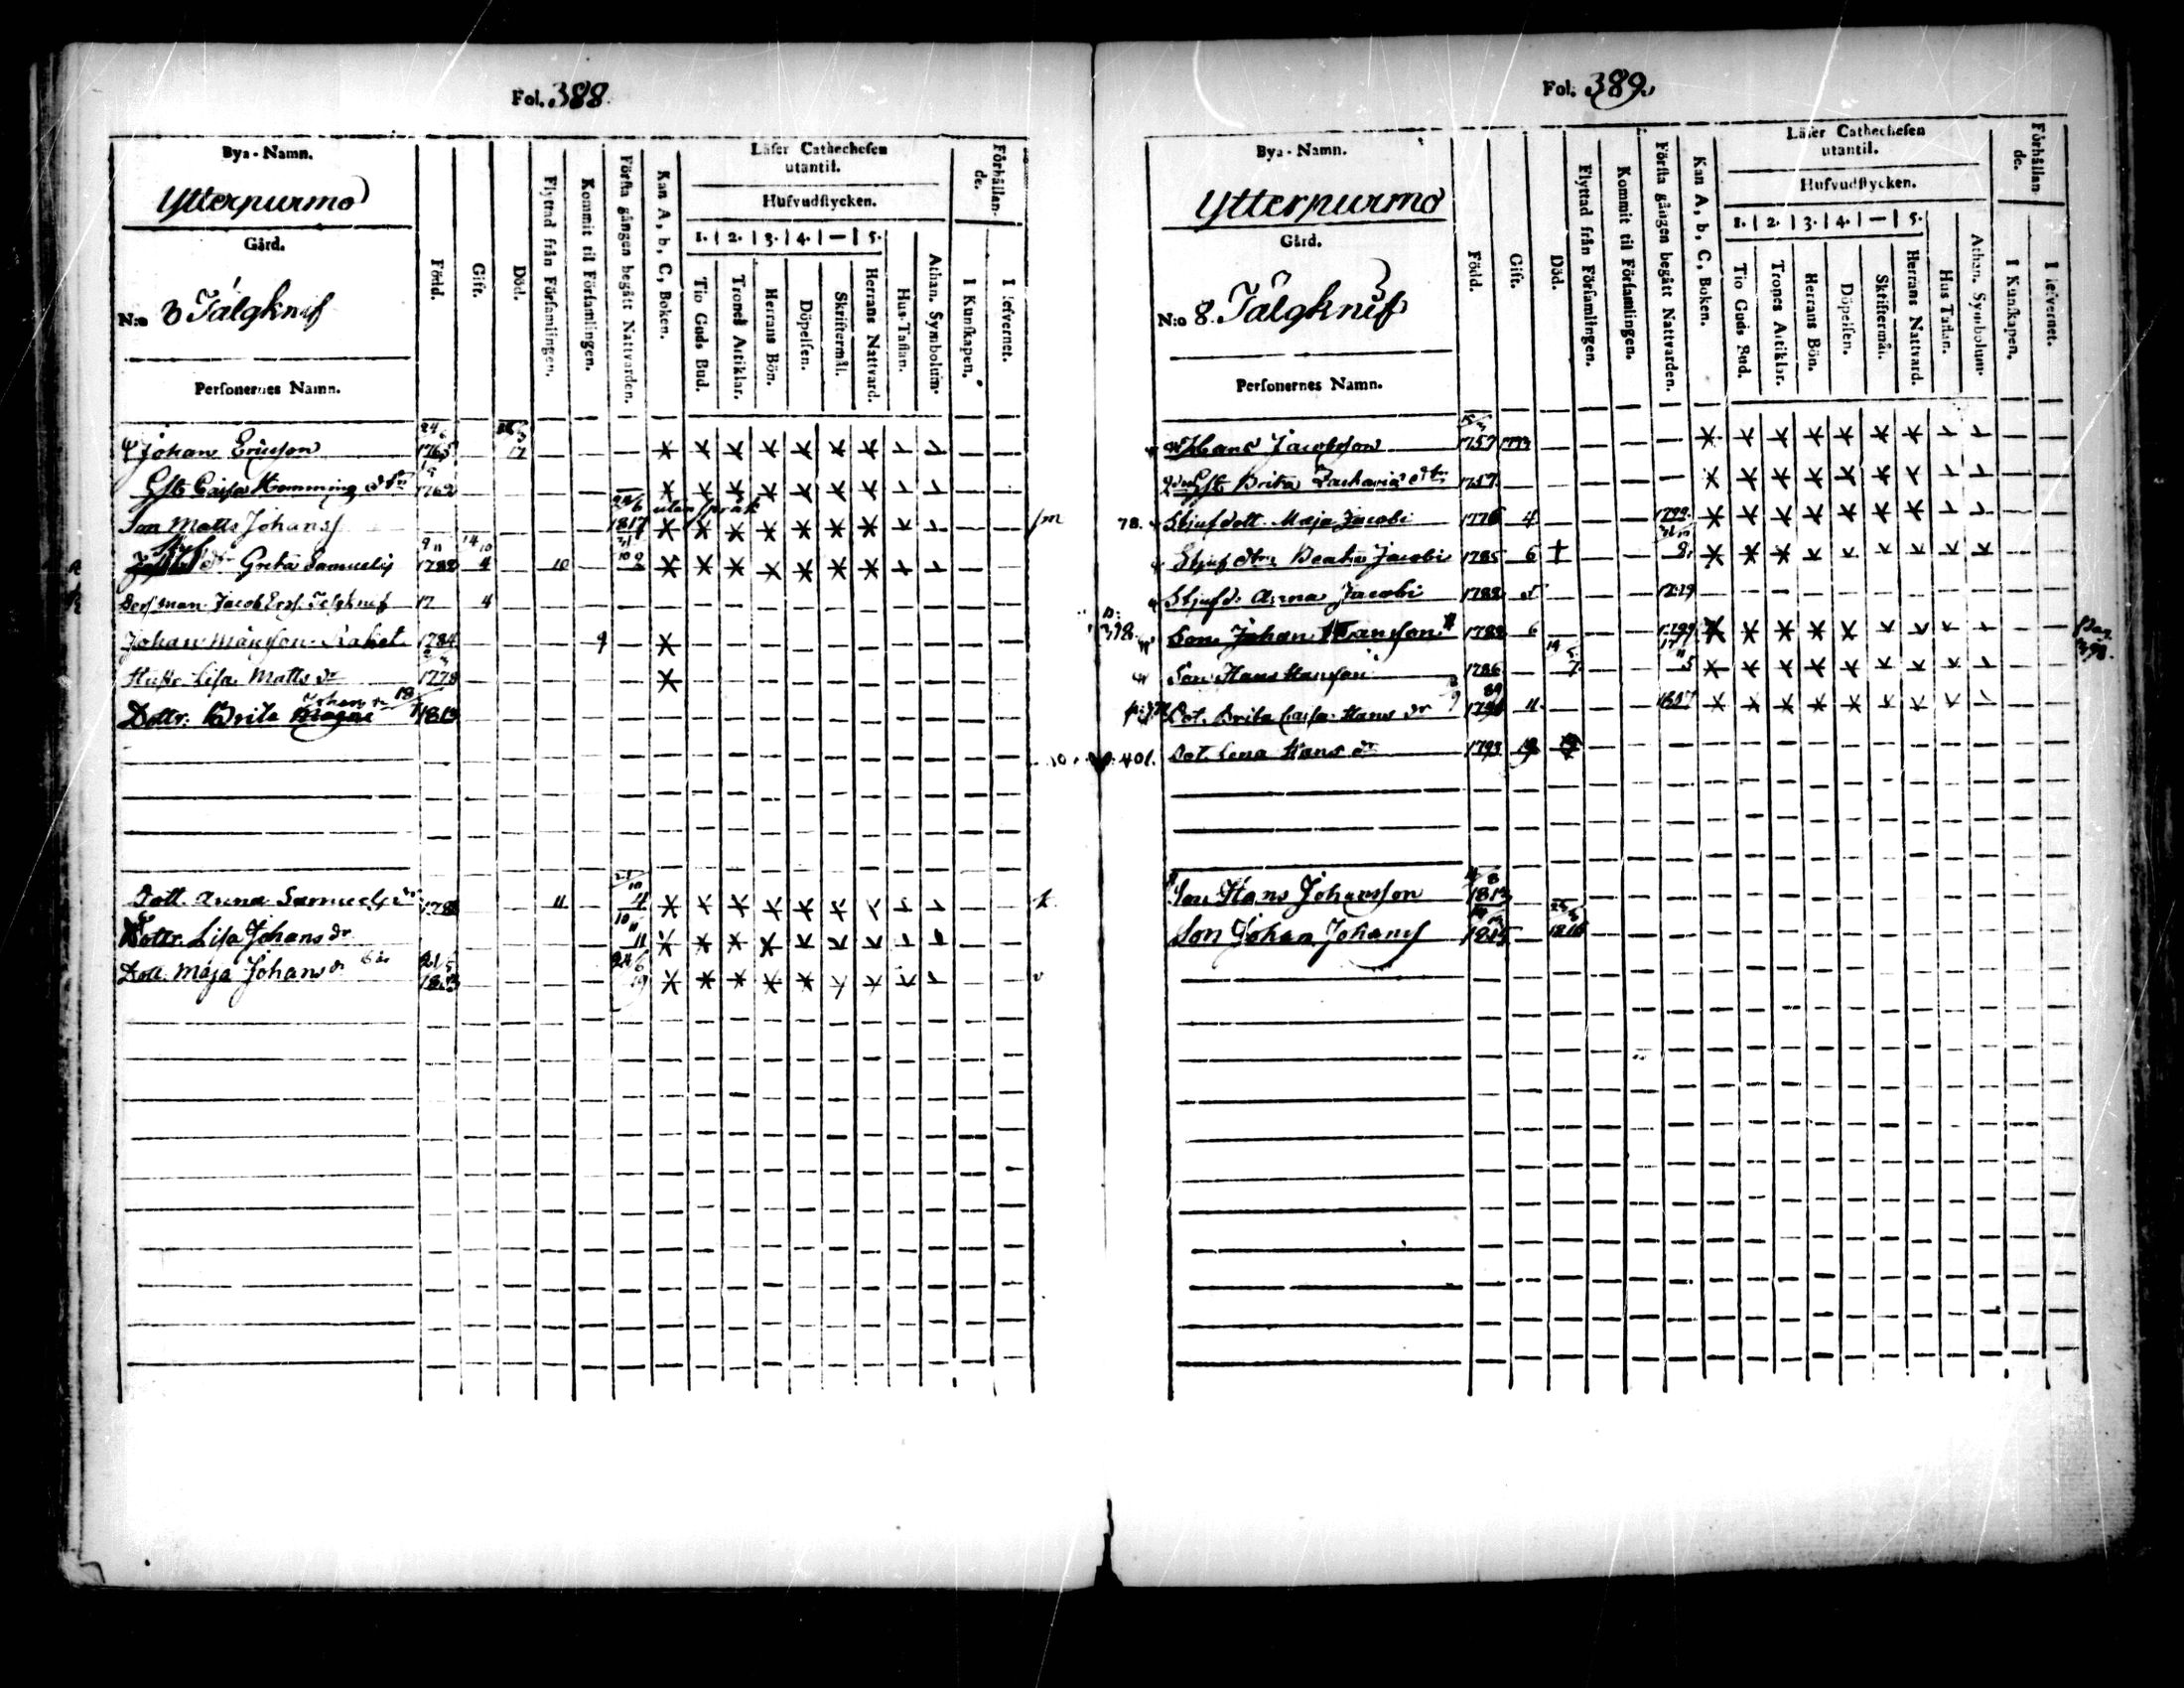 Fol. 388.
Bya-Namn.
Ytterpurmo
Gård.
N:o 8 Tälgknif
Personernes Namn.
Född.
Gift.
Död.
Flyttad från Församlingen.
Kommit til Församlingen.
Första gången begått Nattvarden.
Kan A, b, C, Boken.
Läser Cathechesen utantil.
Hufvudstycken.
1. 2. 3. 4. — 5.
Tio Guds Bud.
Trones Artiklar.
Herrans Bön.
Döpelsen.
Skriftermål.
Herrans Nattvard.
Hus-Taflan.
Athan. Symbolum.
Förhållande.
I Kunskapen.
I lefvernet.
Johan Ericson 1765 17
Hst. Caisa Hemming dtr 1762
Son Matts Johanss 24/6 1817 utan språk
dr Greta Samuelis 9/11 1788 14/10 4 10
Dess man Jacob Ers. Telgknif 17 4
Johan Månsson Raket 1784 9
Hustr Lisa Matts dr 1778
Dottr. Brita Johans dr 1813
Dott. Anna Samuels dr 178 11
Dottr. Lisa Johans dr 10/11 11
Dott. Maja Johans dr 21/5 1803 24/6 19
Fol. 389.
Bya-Namn.
Ytterpurmo
Gård.
N:o 8. Tälgknif
Personernes Namn.
Född.
Gift.
Död.
Flyttad från Församlingen.
Kommit til Församlingen.
Första gången begått Nattvarden.
Kan A, b, C, Boken.
Läser Cathechesen utantil.
Hufvudstycken.
1. 2. 3. 4. — 5.
Tio Guds Bud.
Trones Artiklar.
Herrans Bön.
Döpelsen.
Skriftermål.
Herrans Nattvard.
Hus Taflan.
Athan. Symbolum.
Förhållande.
I Kunskapen.
I lefvernet.
Hans Jacobson 1757 1773
Hst. Brita Zacharia dtr 1757
78. Stjufdott. Maja Jacobi 1776 4 1799
Stjuf dtr Beata Jacobi 1785 6 † 8
Stjufd. Anna Jacobi 1788 5 1799
398. Son Johan Hansson 1782 6 1799 pag. 398.
Son Hans Hansson 1786 5
Dot. Brita Caisa Hans dr 11 1807
401. Dot. Lena Hans dr 1793
Son Hans Johansson 1813
Son Johan Johans 1815 1816